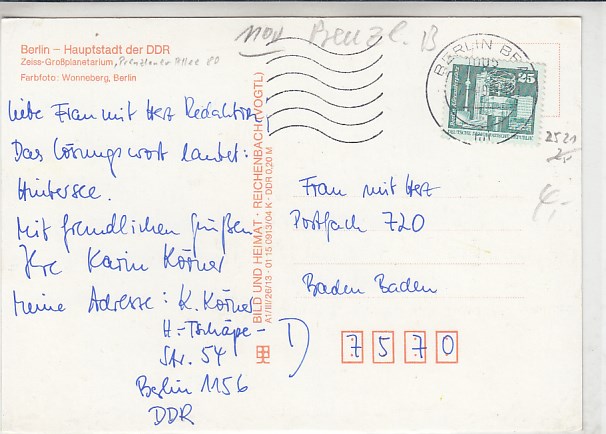 Berlin – Hauptstadt der DDR
Zeiss-Großplanetarium, Prenzlauer Allee 80
Farbfoto: Wonneberg, Berlin
Liebe Frau mit Herz Redaktion!
Das Lösungswort lautet:
Hintersee.
Mit freundlichen Grüßen
Ihre Karin Körner
Meine Adresse: K. Körner
H.-Tschäpe-
Str. 54
Berlin 1156
DDR
BILD UND HEIMAT · REICHENBACH (VOGTL)
A1/III/26/13 · 01 15 0913/04 K · DDR 0,20 M
1104 Prenzl. B
BERLIN
25
DEUTSCHE DEMOKRATISCHE REPUBLIK
2521
2,-
4,-
Frau mit Herz
Postfach 720
Baden Baden
D
7570